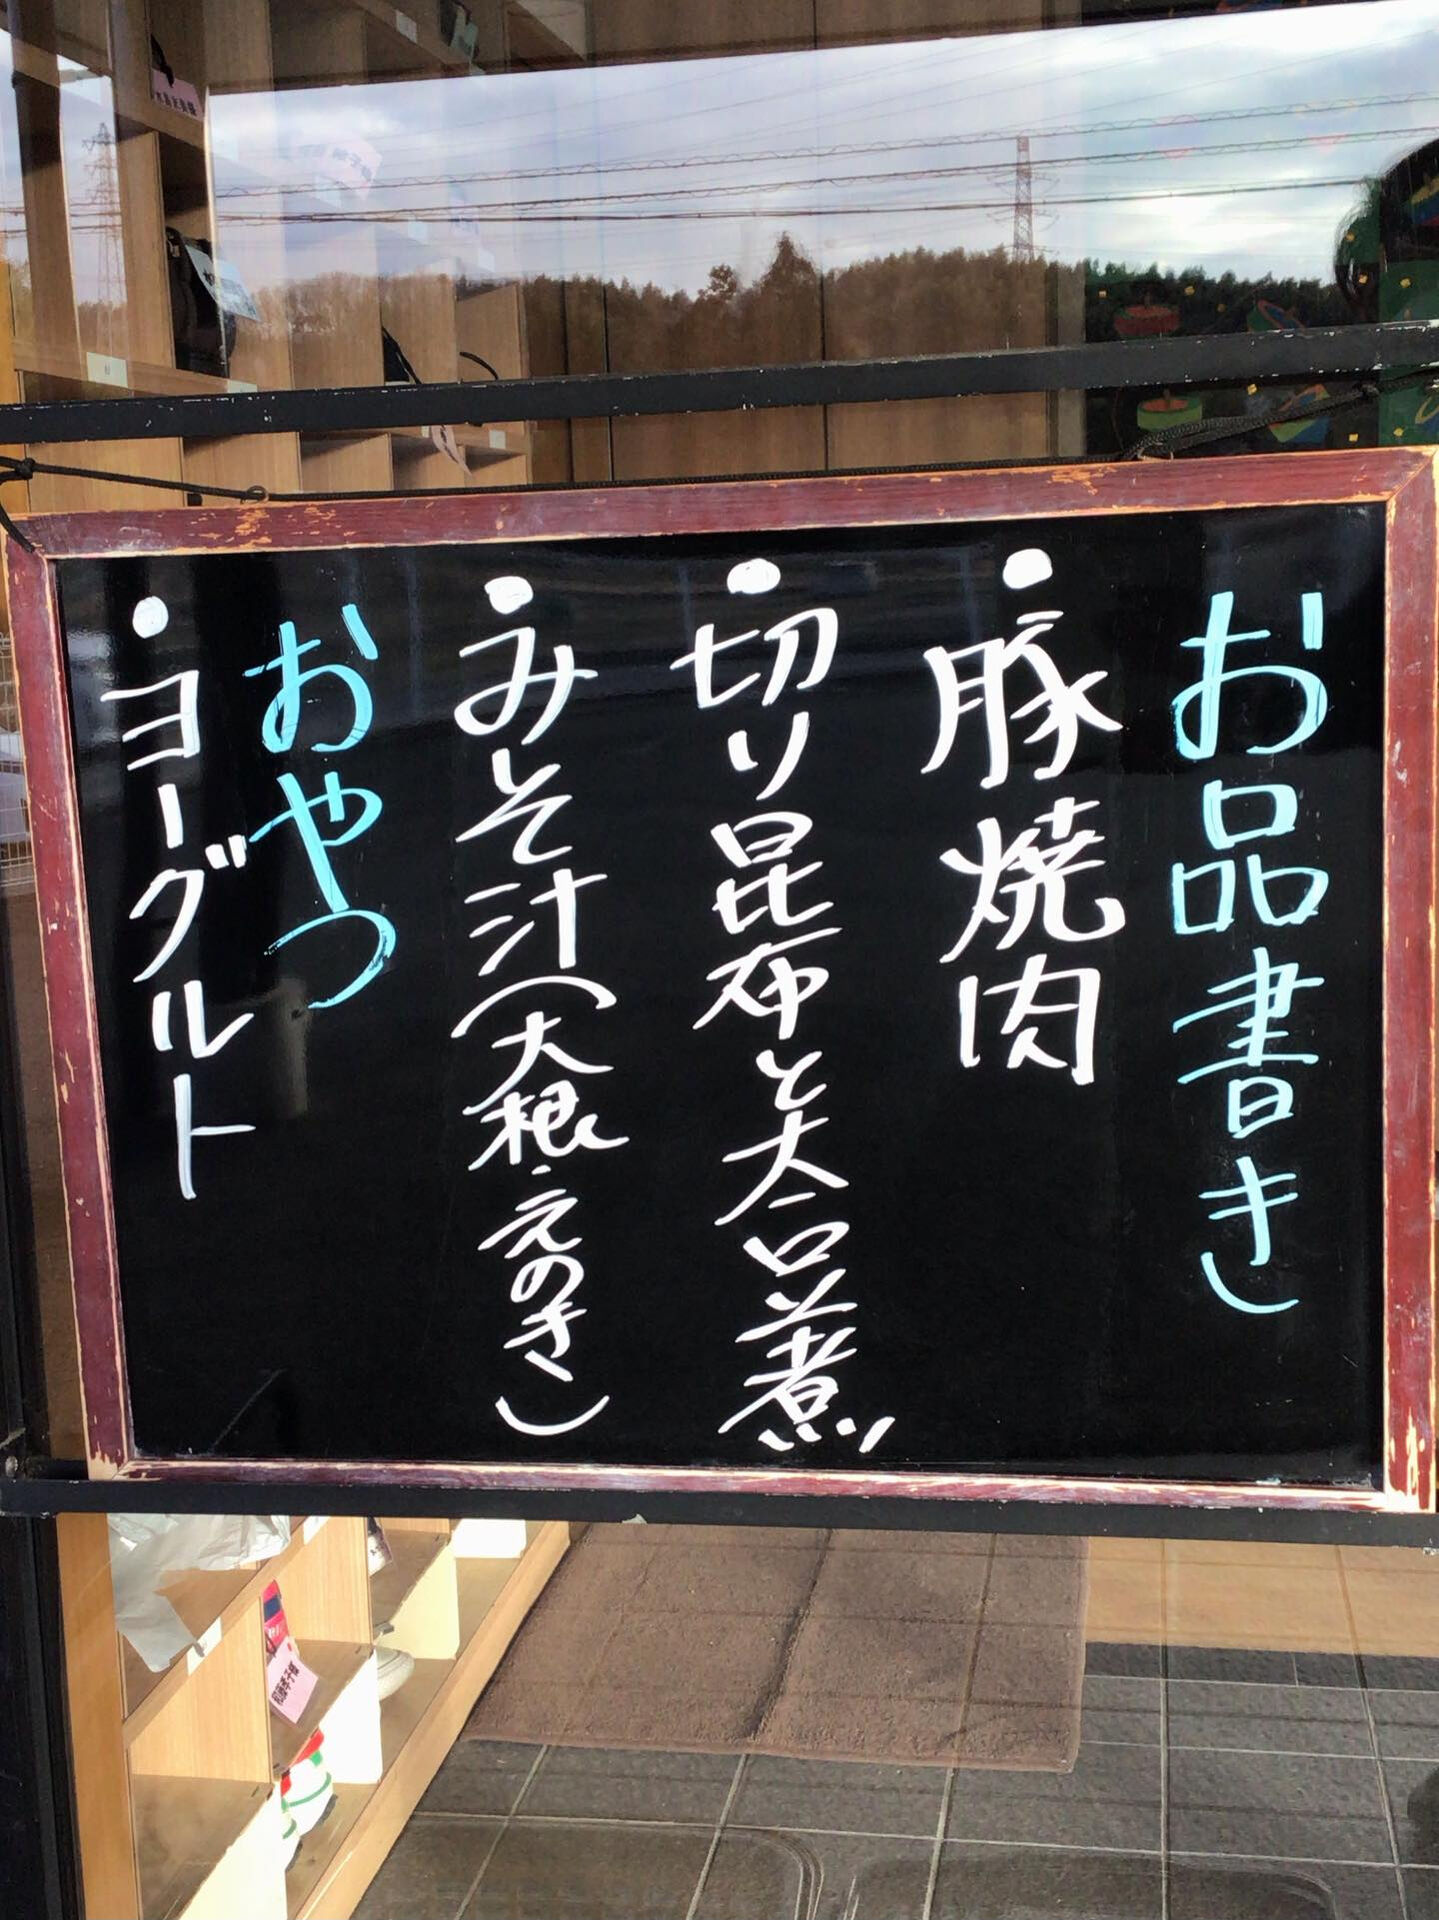 お品書き
・豚焼肉
・切り昆布と大豆煮
・みそ汁(大根・えのき)
おやつ
・ヨーグルト